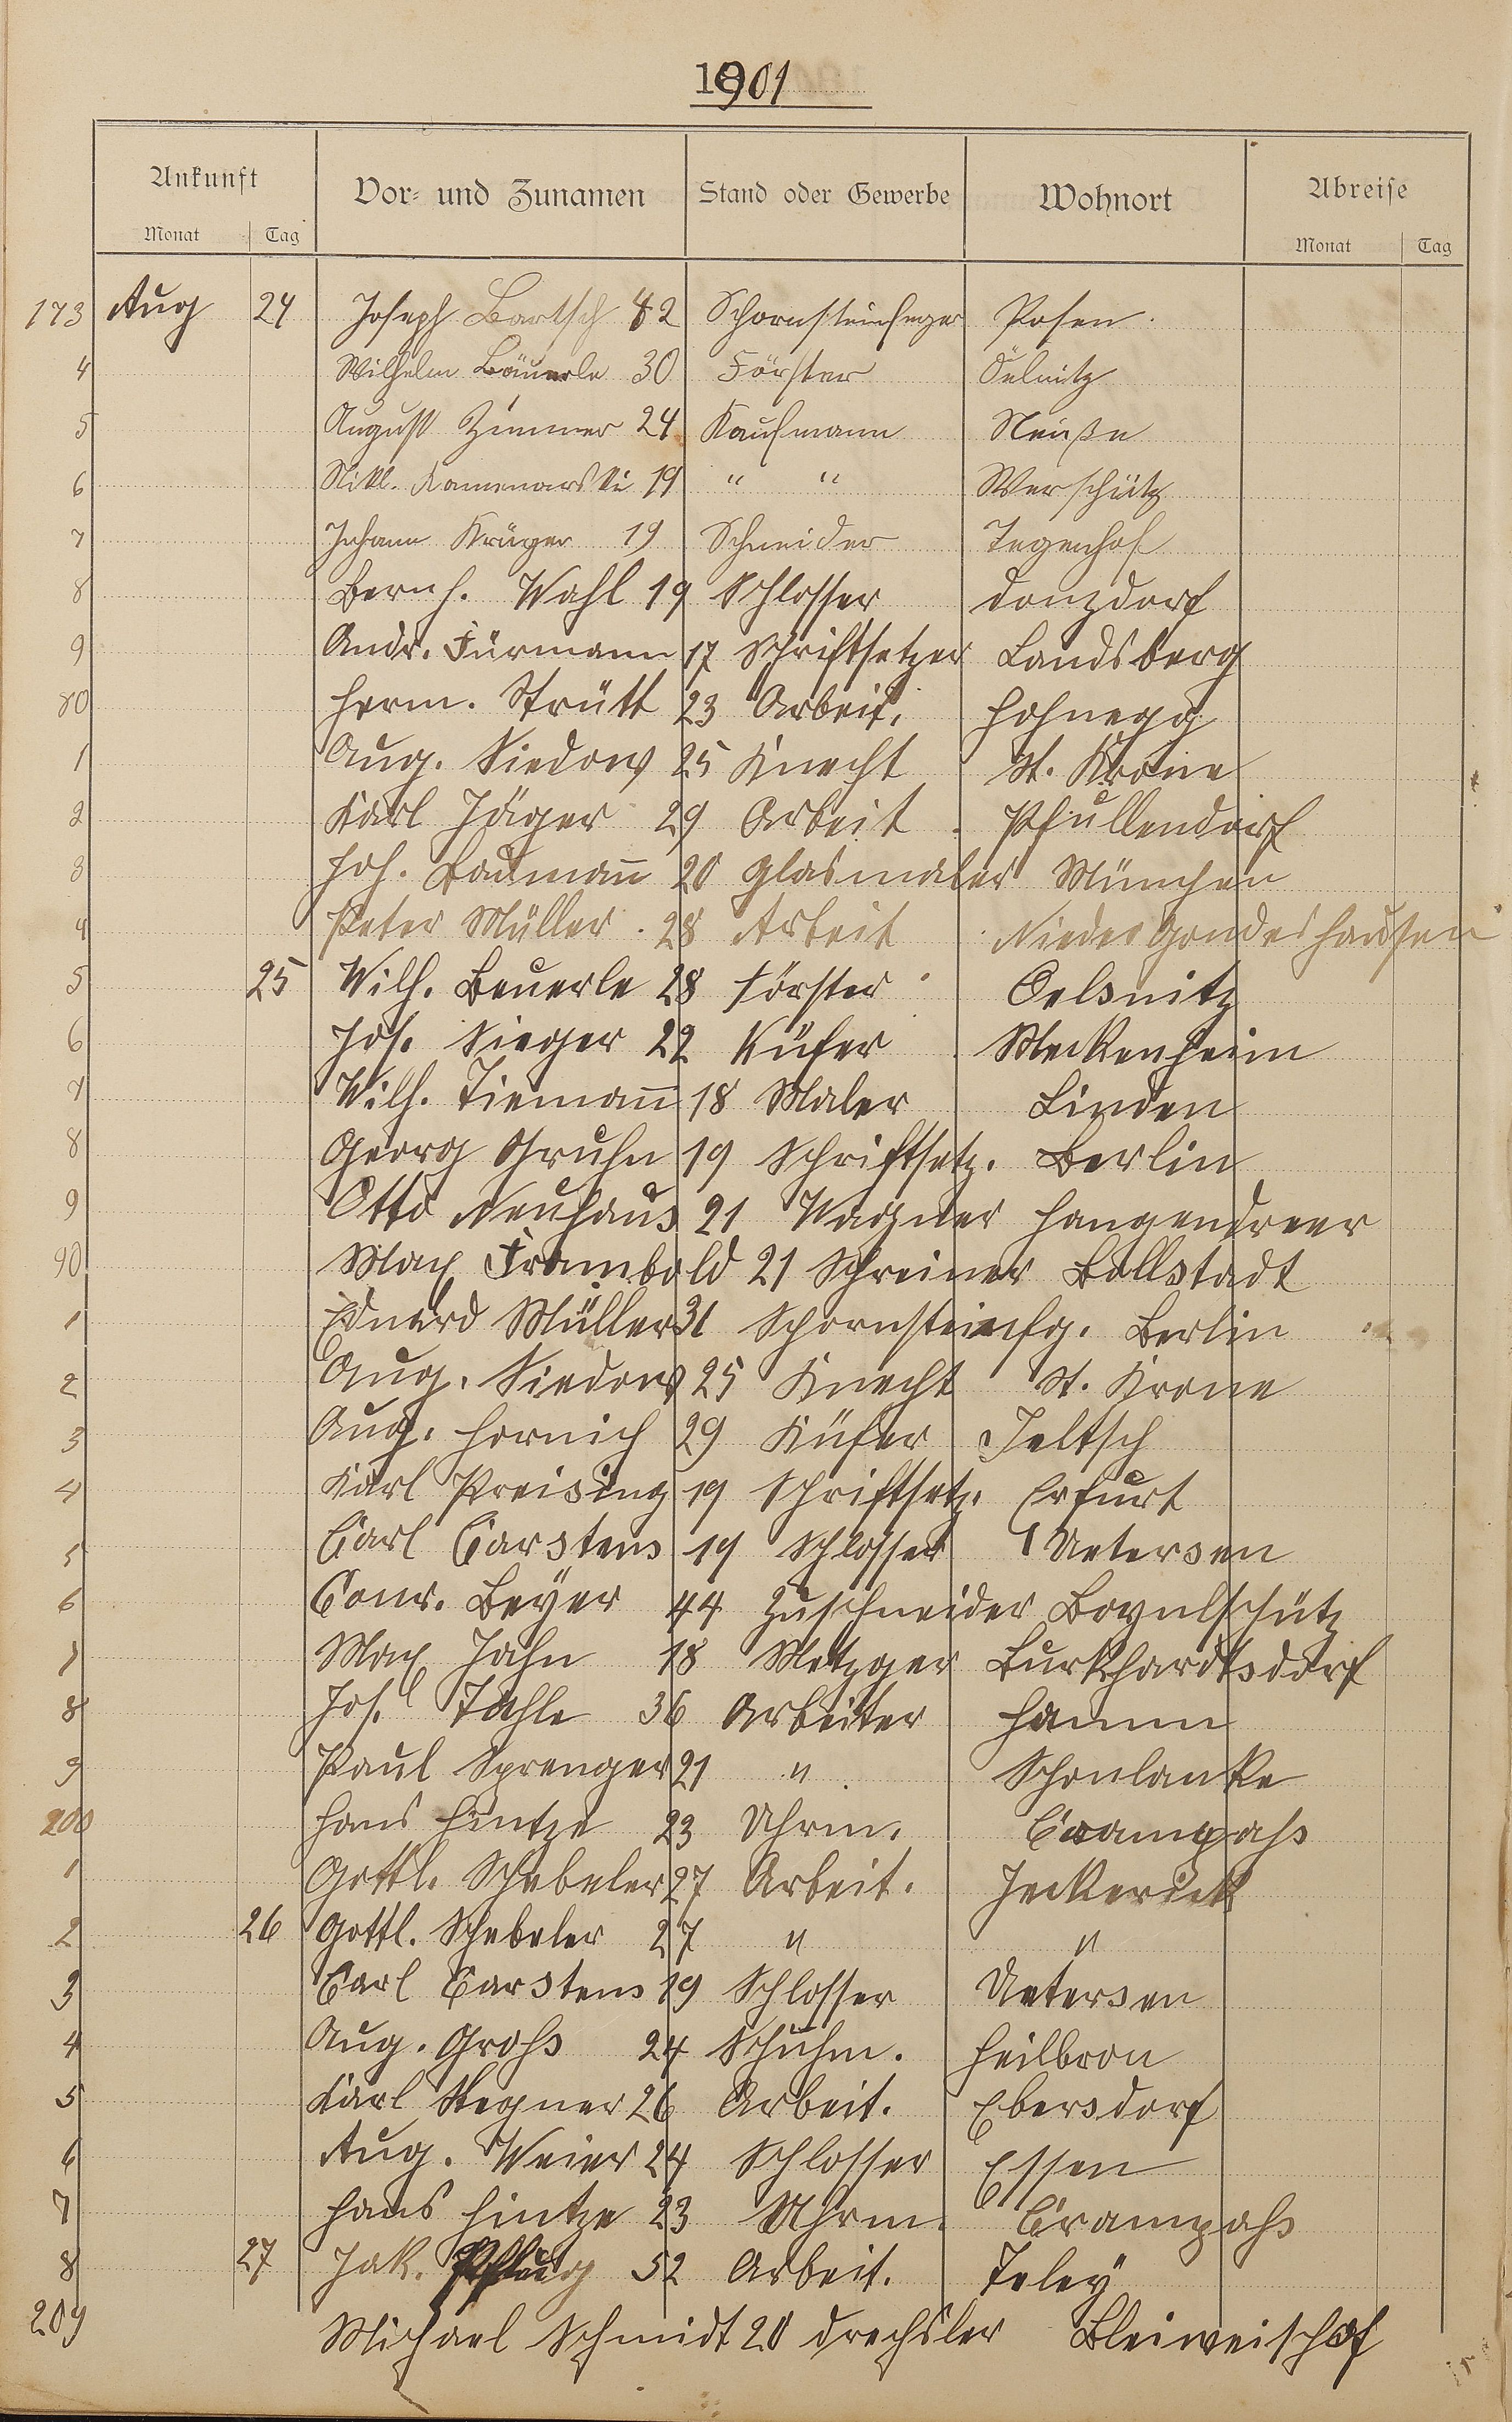 1901
Ankunft Vor- und Zunamen Stand oder Gewerbe Wohnort Abreise
Monat Tag Monat Tag
173 Aug 24 Joseph Bartsch 42 Schornsteinfeger Posen.
4 Wilhelm Bäuerle 30 Förster Öelnitz
5 August Zimmer 24 Kaufmann Neuße
6 Nikl. Kamenarski 19 " " Werschütz
7 Johann Krüger 19 Schneider Tegenhof
8 Bernh. Wahl 19 Schlosser Donzdorf
9 Andr. Fürmann 17 Schriftsetzer Landsberg
80 Herm. Strütt 23 Arbeit. Hohnegg
1 Aug. Siedow 25 Knecht St. Krone
2 Karl Jäger 29 Arbeit. Pfullendorf
3 Joh. Baumañ 20 Glasmaler München
4 Peter Müller. 28 Arbeit Niedergondeshausen
5 25 Wilh. Beuerle 28 Förster Oelsnitz
6 Jos. Sieger 22 Küfer Meckenheim
7 Wilh. Tiemañ 18 Maler Linden
8 Georg Gruhn 19 Schriftsetz. Berlin
9 Otto Neuhaus 21 Wagner Langendreer
90 Max Frambold 21 Schreiner Bollstadt
1 Eduard Müller 31 Schornsteinfg. Berlin
2 Aug. Siedow 25 Knecht St. Krone
3 Aug. Hornich 29 Küfer Jeltsch
4 Karl Preising 19 Schriftsetz. Erfurt
5 Carl Carstens 19 Schlosser Uetersen
6 Conr. Beyer 44 Zuschneider
7 Max Jahn 18 Metzger Burkhardtsdorf
8 Jos. Tahle 36 Arbeiter Hamm
9 Paul Sprenger 21 " Schonlanke
200 Hans Hintze 23 Uhrm. Crampahs
1 Gottl. Schebeler 27 Arbeit. Jeckerick
2 26 Gottl. Schebeler 27 " "
3 Carl Carstens 19 Schlosser Uetersen
4 Aug. Grohs 24 Schuhm. Heilbron
5 Karl Stegner 26 Arbeit. Ebersdorf
6 Aug. Weier 24 Schlosser Essen
7 Hans Hintze 23 Uhrm. Crampahs
8 27 Jak. Pflug 52 Arbeit. Teley
209 Michael Schmidt 20 Drechsler Bleiweishof